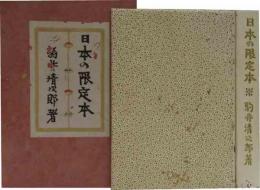 日本の限定本
酒井清次郎著
日本の限定本
駒井清次郎著